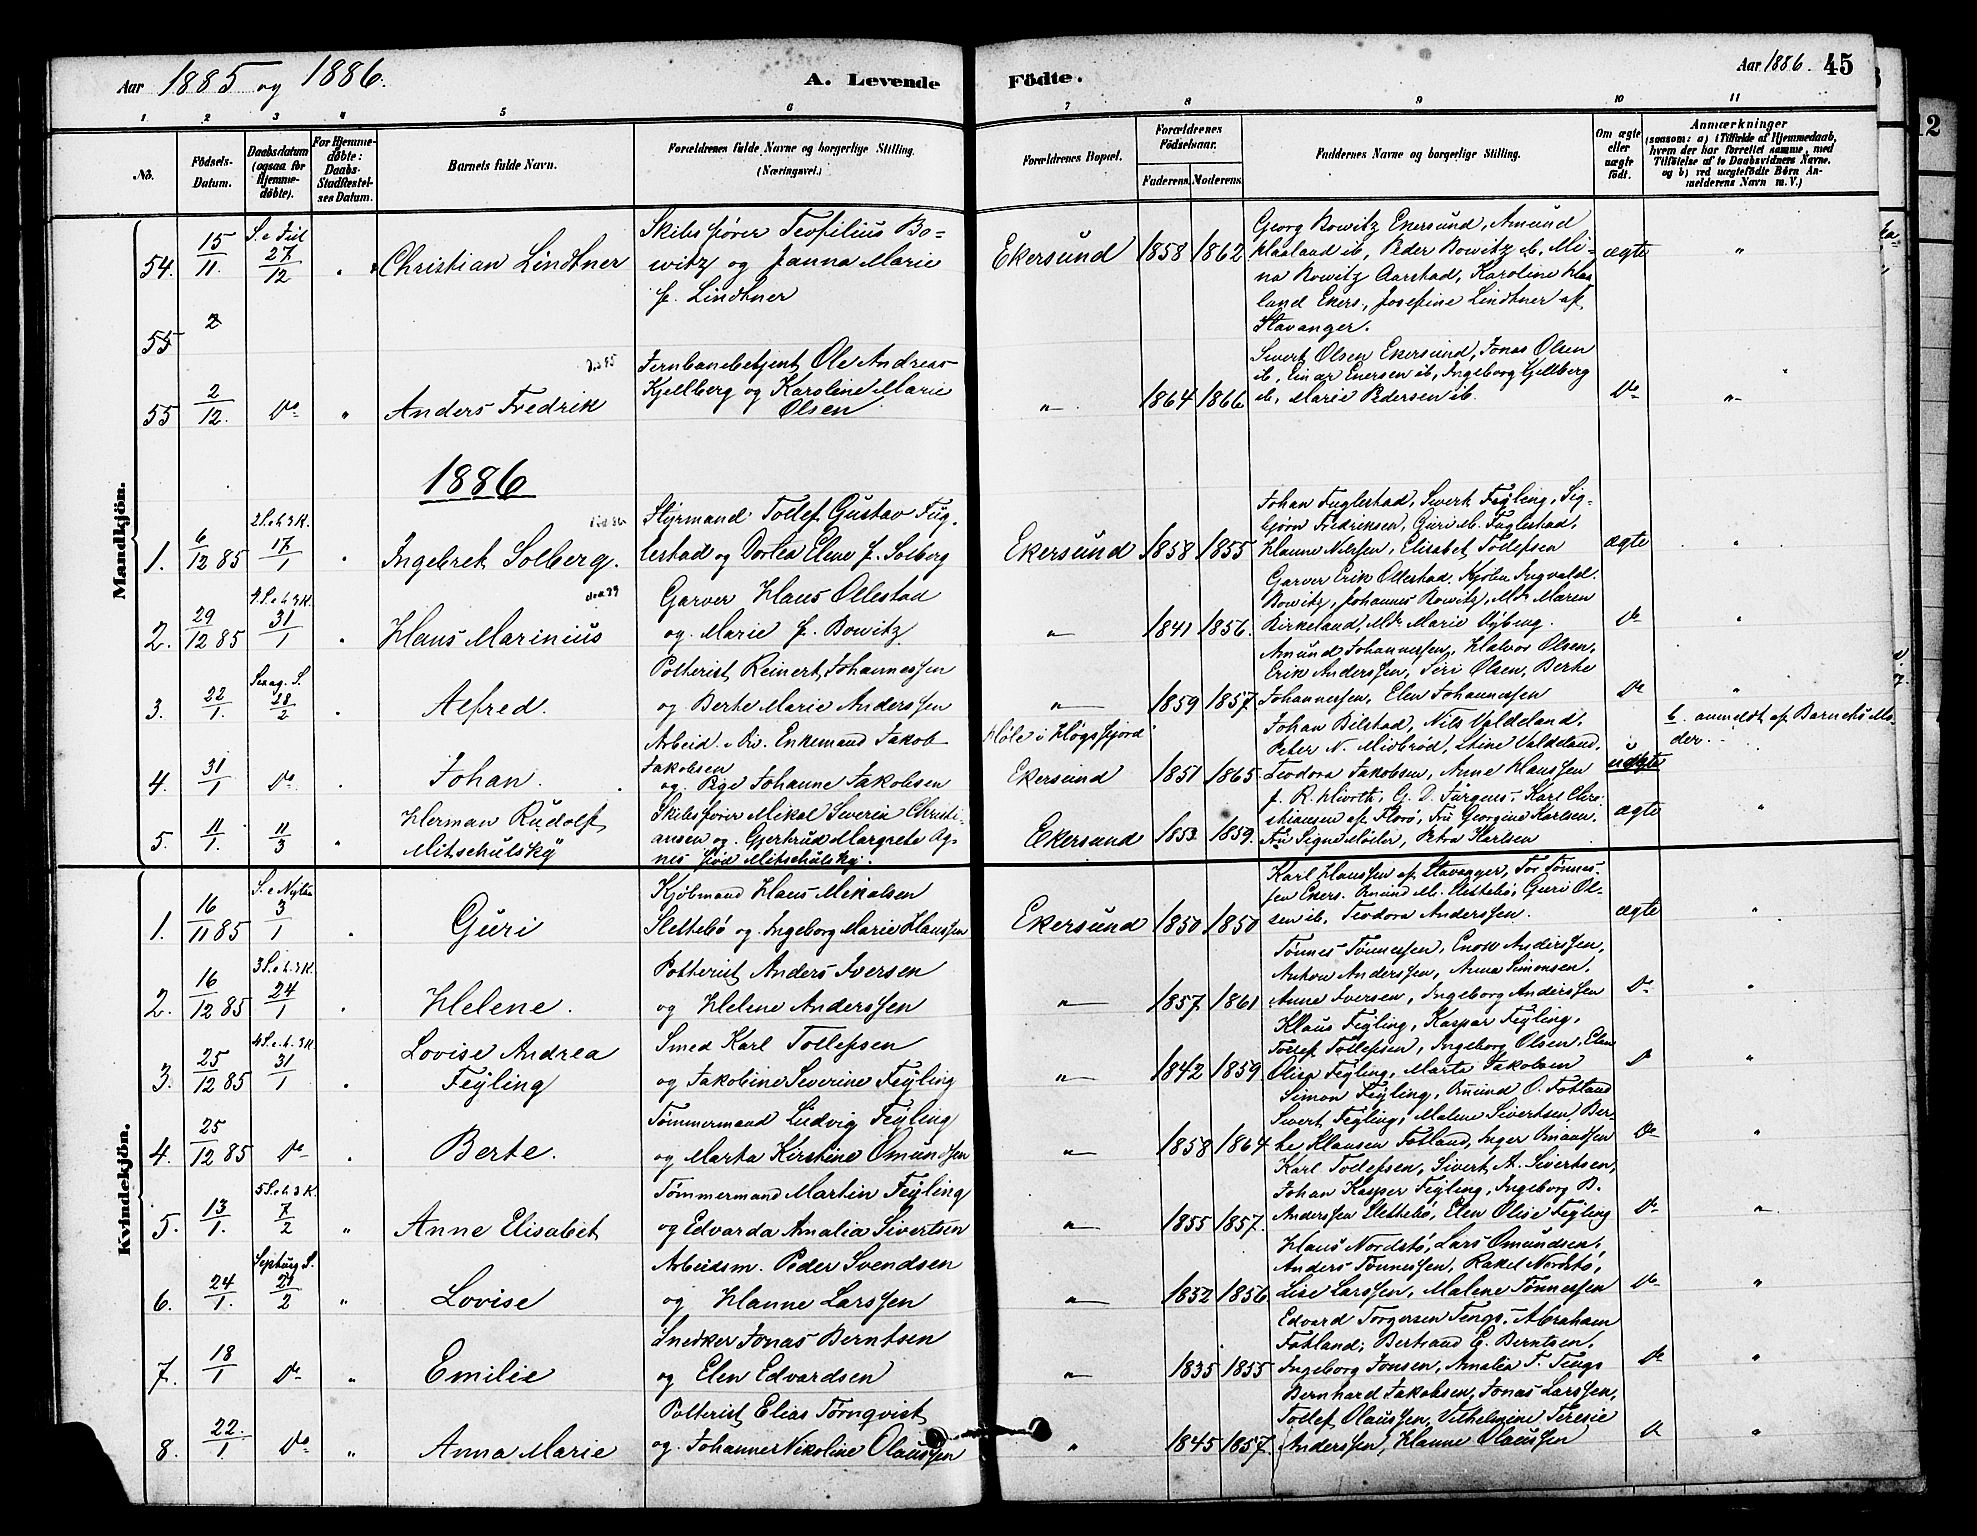 Aar 1885 og 1886.
A. Levende
Födte.
Aar 1886. 45
1 2 3 4 5 6 7 8 9 10 11
No.
Födsels-
Datum.
Daabsdatum
(ogsaa for
Hjemme-
döbte).
For Hjemme-
döbte:
Daabs-
Stadfæstel-
ses Datum.
Barnets fulde Navn.
Forældrenes fulde Navne og borgerlige Stilling.
(Næringsvei.)
Forældrenes Bopæl.
Forældrenes
Födselsaar.
Faderens. Moderens.
Faddernes Navne og borgerlige Stilling.
Om ægte
eller
uægte
født.
Anmærkninger
(saasom: a) i Tilfælde af Hjemmedaab,
hvem der har forrettet samme, med
Tilföielse af to Daabsvidners Navne,
og b) ved uægtefödte Börn An-
melderens Navn m. V.)
Mandkjön.
54. 15/11. S. e. Jul 27/12 " Christian Lindtner
Skibsfører Teofilius Bo-
witz og Janna Marie
f. Lindtner
Ekersund 1858 1862
Georg Bowitz Ekersund, Amund
Klaaland ib, Peder Bowitz ib, Mi-
na Bowitz Aarstad, Karoline Klaa
land Ekers., Josefine Lindtner af
Stavanger.
ægte "
55 2
55 2/12. Do " Anders Fredrik
Jernbanebetjent Ole Andreas
Kjellberg og Karoline Marie
Olsen
" 1864 1866
Sivert Olsen Ekersund, Jonas Olsen
ib, Einar Enersen ib, Ingeborg Kjellberg
ib, Marie Pedersen ib.
Do "
1886
1. 6/12 85 2 S. e. h. 3 K. 17/1 " Ingebret Solberg.
Styrmand Tollef Gustav Fug-
lestad og Dortea Elene f. Solberg
Ekersund 1858 1855
Johan Fuglestad, Sivert Fejling, Sig-
bjørn Fredriksen, Guri M. Fuglestad,
Hanne Nilssen, Elisabet Tollefsen
ægte "
2. 29/12 85 4 S. e. h. 3 K. 31/1 " Hans Marinius
Garver Hans Ollestad
og Marie f. Bowitz
" 1841 1856.
Garver Erik Ollestad, Kjøbm Ingvald
Bowitz, Johannes Bowitz, Mdm Maren
Birkeland, Mdm Marie Nyberg.
Do "
3. 22/1. Sexag. S. 28/2 " Alfred.
Potterist Reinert Johannessen
og Berte Marie Anderssen
" 1859 1857
Amund Johannessen, Halvor Olsen,
Erik Anderssen, Siri Olsen, Berte
Johannessen, Elen Johannessen
Do "
4. 31/1 Do " Johan.
Arbeid. Enkemand Jakob
Jakobsen
og Pige Johanne Jakobsen
Høle i Høgsfjord
Ekersund 1851 1865
Johan Bilstad, Nils Valdeland,
Peter N. Midbrød, Stine Valdeland,
Teodora Jakobsen, Anne Hanssen
uægte
b. anmeldt af Barnets Mo-
der.
5. 11/1. 11/3 " Herman Rudolf
Mitschulsky
Skibsfører Mikal Severin Christi-
ansen og Gjertrud Margrete Ag-
nes fød Mitschulsky.
Ekersund 1853 1859.
f. R. Hiorth, G. D. Jürgens, Karl Chri-
stiansen af Florø, Fru Georgine Karlsen,
Fru Signe Møller, Petra Karlsen
ægte "
Kvindekjön.
1. 16/11 85 S. e. Nytaar 3/1 " Guri
Kjøbmand Hans Mikalsen
Slettebø og Ingeborg Marie Hanssen
Ekersund 1850 1850
Karl Hanssen af Stavanger, Tor Tønnes-
sen Ekers. Omund M. Slettebø, Guri Ol-
sen ib, Teodora Anderssen.
ægte "
2. 16/12 85 3 S. e. h. 3 K. 24/1 " Helene.
Potterist Anders Iversen
og Helene Anderssen
" 1857 1861
Tønnes Tønnessen, Enok Anderssen,
Anton Anderssen, Anna Simonsen,
Anne Iversen, Ingeborg Anderssen
Do "
3. 25/12 85 4 S. e. h. 3 K. 31/1 " Lovise Andrea
Fejling
Smed Karl Tollefsen
og Jakobine Severine Fejling
" 1842 1859
Klaus Fejling, Kaspar Fejling,
Tollef Tollefsen, Ingeborg Olsen, Elen
Olise Fejling, Marta Jakobsen
Do "
4. 25/12 85 Do " Berte.
Tømmermand Ludvig Fejling
og Marta Kirstine Omundsen
" 1858 1864
Simon Fejling, Omund O. Fotland
Sivert Fejling, Malene Sivertsen Ber-
te Klausen Fotland, Inger Omundsen
Do "
5. 13/1. 5 S. e. h. 3 K. 7/2 " Anne Elisabet
Tømmermand Martin Fejling
og Edvarda Amalia Sivertsen
" 1855 1857.
Karl Tollefsen, Sivert A. Sivertsen,
Johan Kasper Fejling, Ingeborg B.
Anderssen Slettebø, Elen Olise Fejling
Do "
6. 24/1. Septuag S. 21/2 " Lovise
Arbeidsm. Peder Svendsen
og Hanne Larssen
" 1852 1856
Hans Nordstø, Lars Omundsen,
Anders Tønnessen, Rakel Nordstø,
Lise Larssen, Malene Tønnessen
Do "
7. 18/1 Do " Emilie
Snedker Jonas Berntsen
og Elen Edvardsen
" 1835 1855
Edvard Torgersen Tengs, Abraham
Fotland, Bertrand E. Berntsen,
Ingeborg Jonsen, Amalia T. Tengs
Do "
8. 22/1 Do " Anna Marie
Potterist Elias Tørnqvist
og Johanne Nikoline Olaussen
" 1845 1857.
Bernhard Jakobsen, Jonas Larssen,
Tollef Olaussen, Vilhelmine Teresie
Anderssen, Hanne Olaussen
Do "